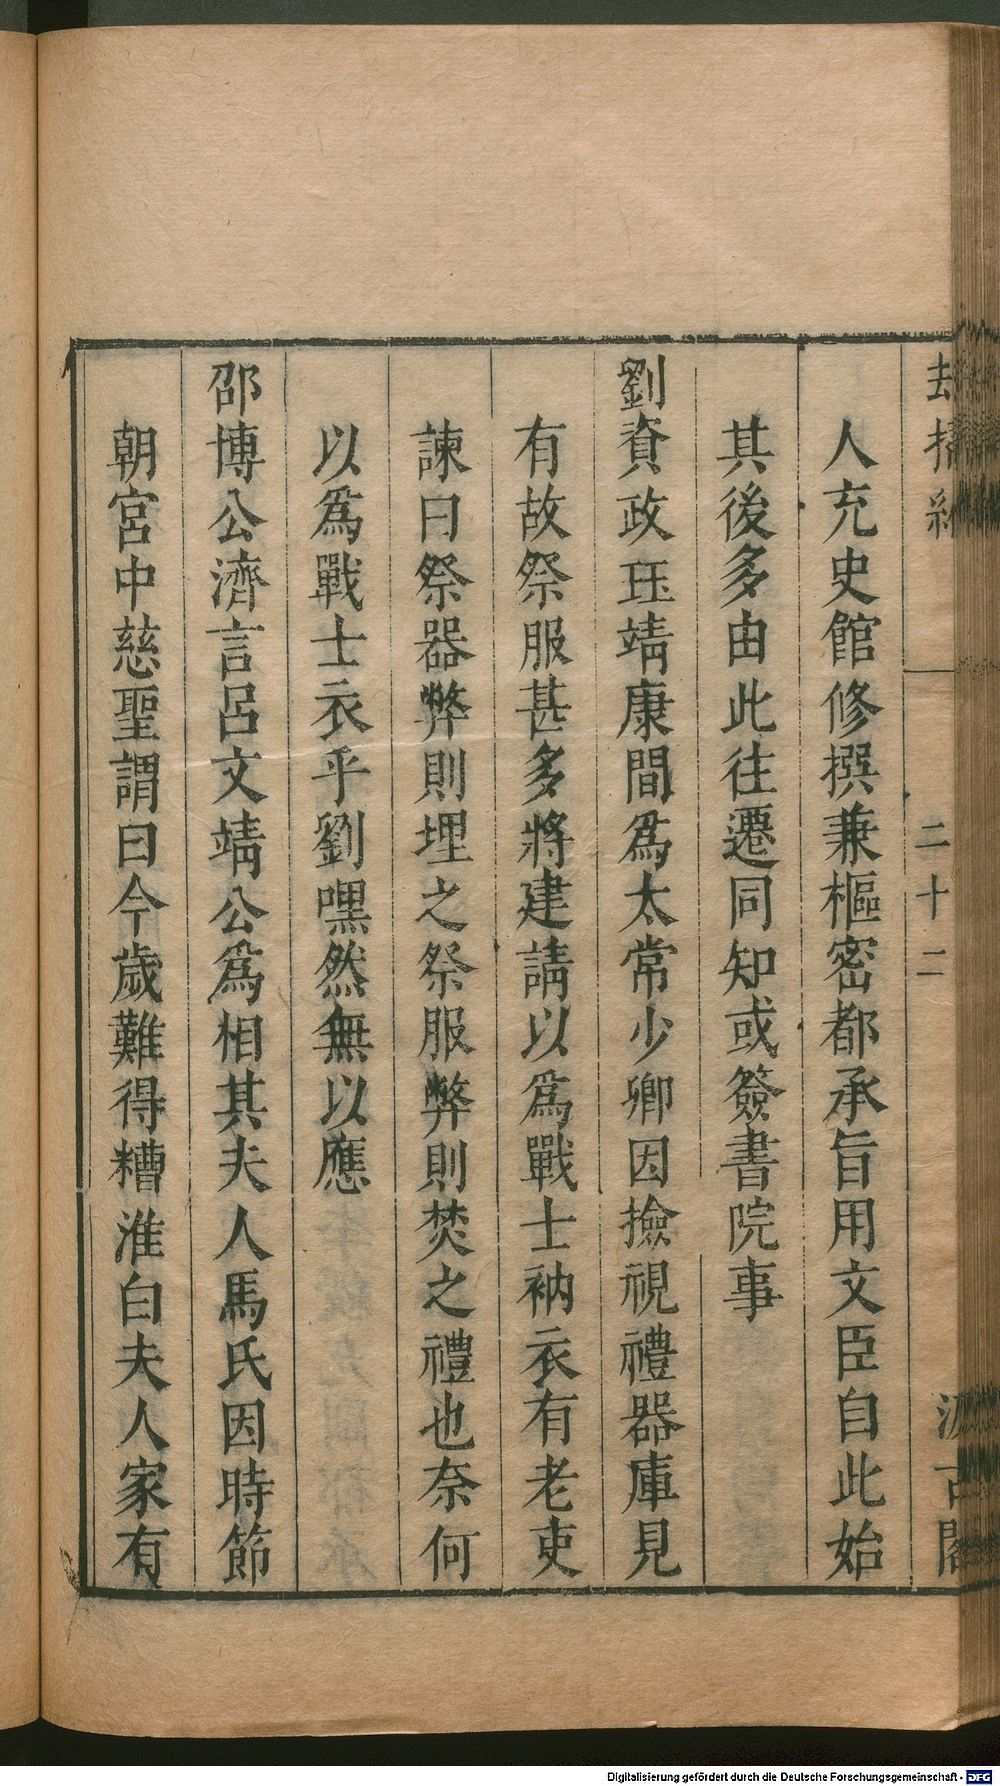 去掃編
二十二
汲古閣
人充史館修撰兼樞密都承旨用文臣自此始
其後多由此往遷同知或簽書院事
劉資政珏靖康間爲太常少卿因撿視禮器庫見
有故祭服甚多將建請以爲戰士衲衣有老吏
諫曰祭器弊則埋之祭服弊則焚之禮也奈何
以爲戰士衣乎劉嘿然無以應
邵博公濟言呂文靖公爲相其夫人馬氏因時節
朝宮中慈聖謂曰今歲難得糟淮白夫人家有
Digitalisierung gefördert durch die Deutsche Forschungsgemeinschaft - DFG